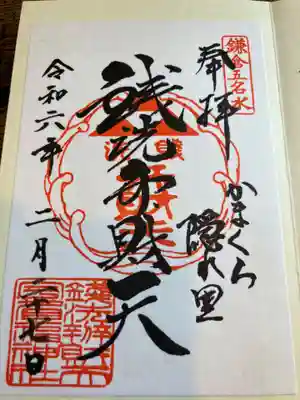 鎌倉五名水
奉拝
かまくら
隠れ里
銭洗弁財天
令和六年 二月二十七日